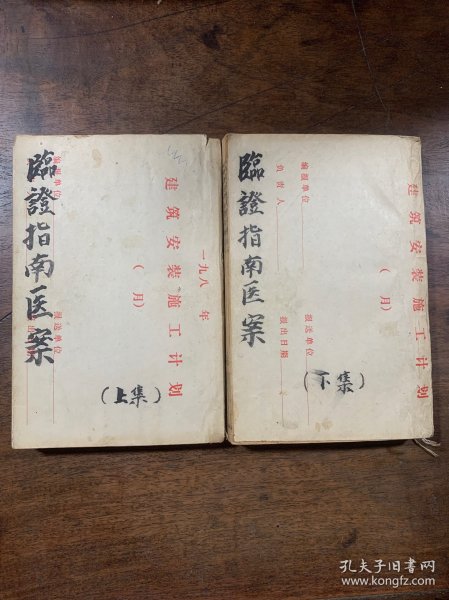 一九八 年
建筑安装施工计划
( 月)
编报单位 报送单位
臨證指南医案
(上集)
建筑安装施工计划
( 月)
编报单位 报送单位
负责人 报出日期
臨證指南医案
(下集)
孔夫子旧书网
www.kongfz.com